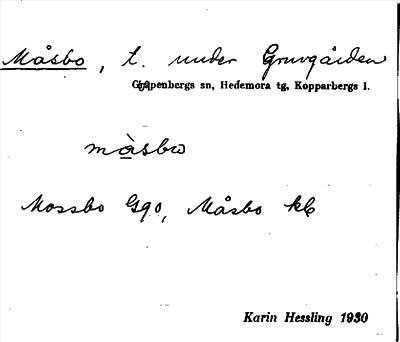 Måsbo, t. under Gruvgården
Garpenbergs sn, Hedemora tg, Kopparbergs l.
måsbo
Mossbo Gqo, Måsbo kb
Karin Hessling 1930